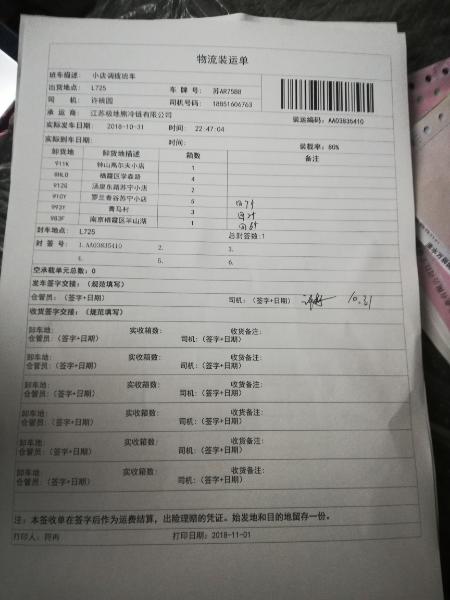 物流装运单
班车描述: 小店调拨班车
出货地点: L725 车 牌 号: 苏AR7588
司 机: 许桃园 司机号码: 18851606763
承 运 商: 江苏极地熊冷链有限公司 装运编码: AA03835410
实际发车日期: 2018-10-31 时间: 22:47:04
实际到车日期: 时间: 装载率: 86%
卸货地 卸货地描述 箱数 备注
911K 钟山高尔夫小店 1
8HL0 栖霞区学森路 4
912G 汤泉东路苏宁小店 2
910Y 罗兰香谷苏宁小店 5
993Y 青马村 3
983F 南京栖霞区羊山湖 1
封车地点: L725 总封签数:1
封 签 号: 1.AA03835410 2. 3.
4. 5. 6.
空承载单元总数: 0
发车签字交接: (规范填写)
仓管员: (签字+日期) 司机: (签字+日期) 10.31
收货签字交接: (规范填写)
卸车地: 实收箱数: 收货备注:
仓管员: (签字+日期) 司机: (签字+日期)
卸车地: 实收箱数: 收货备注:
仓管员: (签字+日期) 司机: (签字+日期)
卸车地: 实收箱数: 收货备注:
仓管员: (签字+日期) 司机: (签字+日期)
卸车地: 实收箱数: 收货备注:
仓管员: (签字+日期) 司机: (签字+日期)
卸车地: 实收箱数: 收货备注:
仓管员: (签字+日期) 司机: (签字+日期)
卸车地: 实收箱数: 收货备注:
仓管员: (签字+日期) 司机: (签字+日期)
注: 本签收单在签字后作为运费结算, 出险理赔的凭证。始发地和目的地留存一份。
打印人: 打印日期: 2018-11-01